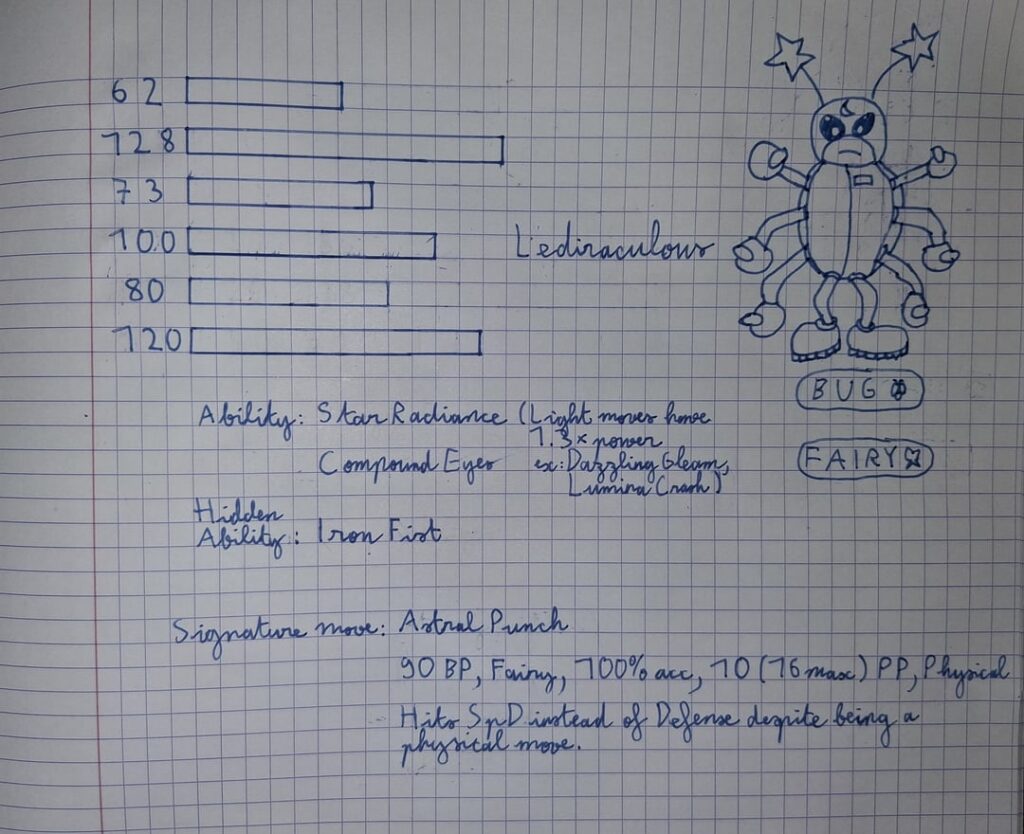 62
128
73
100
80
120
Lediraculous
BUG
FAIRY
Ability: Star Radiance (Light moves have
1.3x power
Compound Eyes ex: Dazzling Gleam,
Lumina Crash)
Hidden
Ability: Iron Fist
Signature move: Astral Punch
90 BP, Fairy, 100% acc, 10 (16 max) PP, Physical
Hits SpD instead of Defense despite being a
physical move.